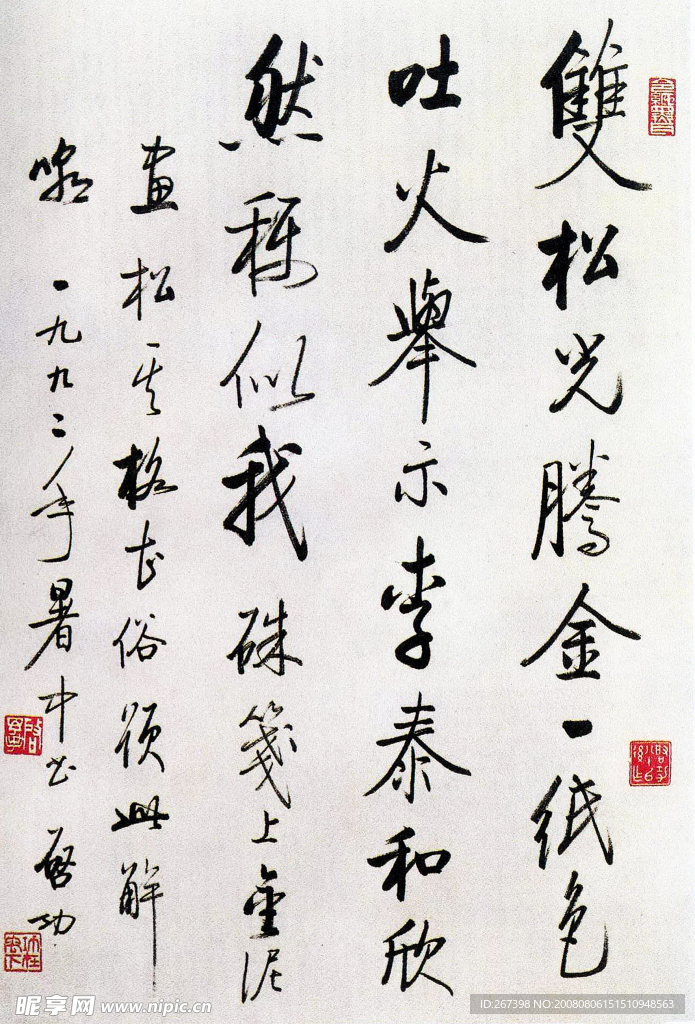 雙松光騰金一紙色
吐火舉示李泰和欣
然稱似我硃箋上金泥
畫松其格甚俗此解
嘲 一九九二年暑中书 啓功
昵享网 www.nipic.cn
ID:267398 NO:20080806151510948563